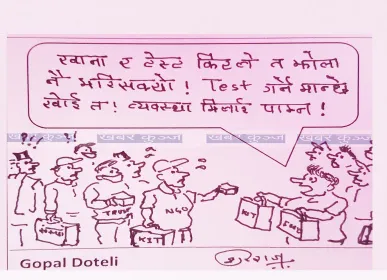 खाना र टेस्ट किटले त झोला
नै भरिसक्यो! Test गर्ने मान्छे
खोई त! व्यवस्था मिलाई पाम्न!
?!! !!
खबर कुञ्ज खबर कुञ्ज खबर कुञ्ज
TRUST
NGO
KIT
KIT
Gopal Doteli